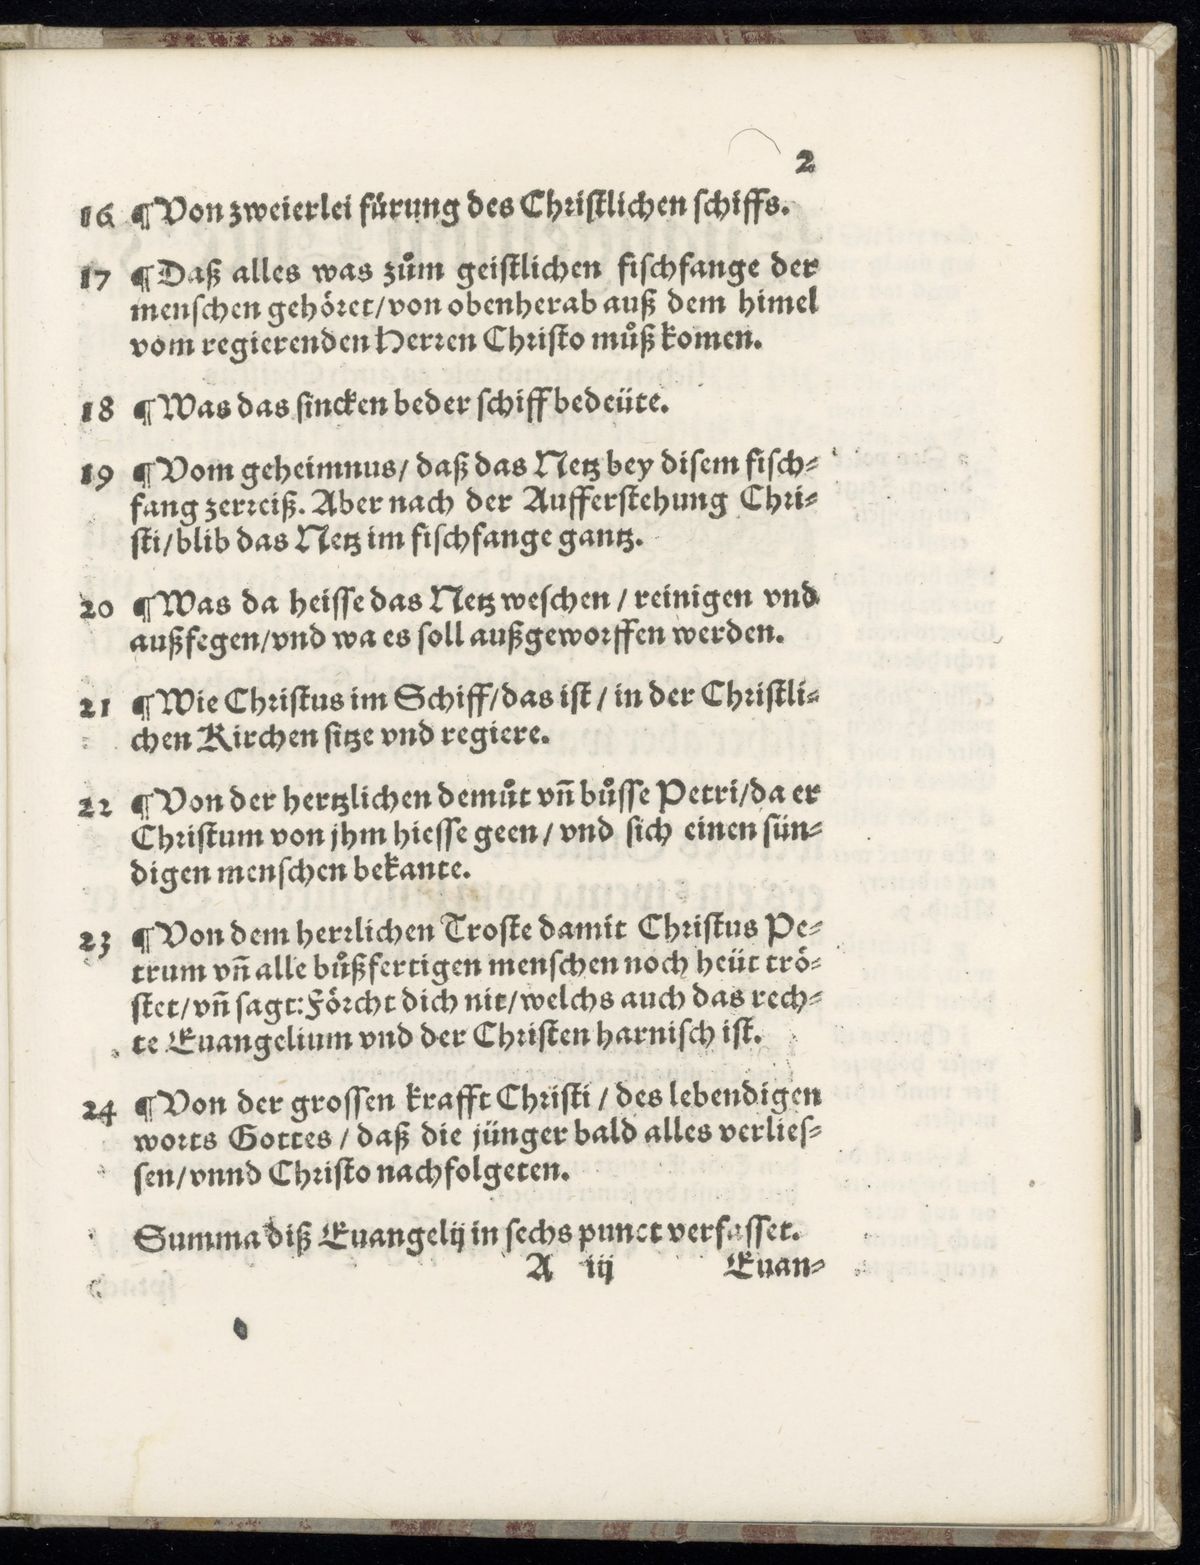 2
16 ¶ Von zweierlei fürung des Christlichen schiffs.
17 ¶ Daß alles was zuͦm geistlichen fischfange der
menschen gehöret/von obenherab auß dem himel
vom regierenden Herren Christo muͦß komen.
18 ¶ Was das sincken beder schiff bedeüte.
19 ¶ Vom geheimnus/ daß das Netz bey disem fisch⸗
fang zerreiß. Aber nach der Aufferstehung Chri⸗
sti/blib das Netz im fischfange gantz.
20 ¶ Was da heisse das Netz weschen / reinigen vnd
außfegen/vnd wa es soll außgeworffen werden.
21 ¶ Wie Christus im Schiff/das ist / in der Christli⸗
chen Kirchen sitze vnd regiere.
22 ¶ Von der hertzlichen demuͦt vñ buͦsse Petri/da er
Christum von jhm hiesse geen / vnd sich einen sün⸗
digen menschen bekante.
23 ¶ Von dem herrlichen Troste damit Christus Pe⸗
trum vñ alle buͦßfertigen menschen noch heüt trö⸗
stet/vñ sagt: Förcht dich nit/welchs auch das rech⸗
te Euangelium vnd der Christen harnisch ist.
24 ¶ Von der grossen krafft Christi / des lebendigen
worts Gottes / daß die jünger bald alles verlies⸗
sen/vnnd Christo nachfolgeten.
Summa diß Euangelij in sechs punct verfasset.
A iij Euan⸗